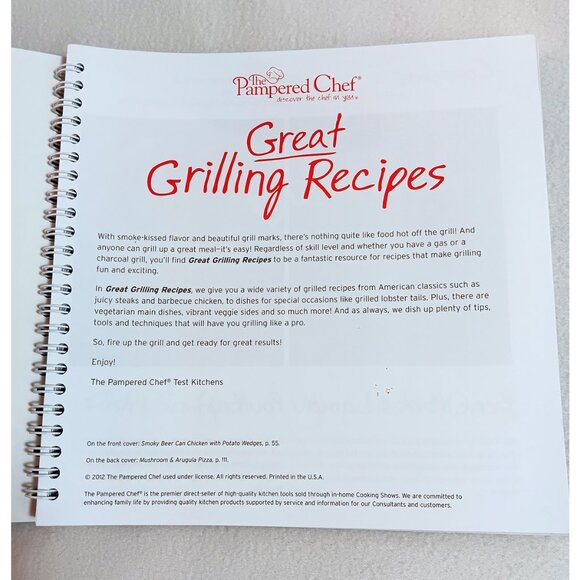 The
Pampered Chef®
discover the chef in you®
Great
Grilling Recipes
With smoke-kissed flavor and beautiful grill marks, there's nothing quite like food hot off the grill! And
anyone can grill up a great meal—it's easy! Regardless of skill level and whether you have a gas or a
charcoal grill, you'll find Great Grilling Recipes to be a fantastic resource for recipes that make grilling
fun and exciting.
In Great Grilling Recipes, we give you a wide variety of grilled recipes from American classics such as
juicy steaks and barbecue chicken, to dishes for special occasions like grilled lobster tails. Plus, there are
vegetarian main dishes, vibrant veggie sides and so much more! And as always, we dish up plenty of tips,
tools and techniques that will have you grilling like a pro.
So, fire up the grill and get ready for great results!
Enjoy!
The Pampered Chef® Test Kitchens
On the front cover: Smoky Beer Can Chicken with Potato Wedges, p. 55.
On the back cover: Mushroom & Arugula Pizza, p. 111.
© 2012 The Pampered Chef used under license. All rights reserved. Printed in the U.S.A.
The Pampered Chef® is the premier direct-seller of high-quality kitchen tools sold through in-home Cooking Shows. We are committed to
enhancing family life by providing quality kitchen products supported by service and information for our Consultants and customers.